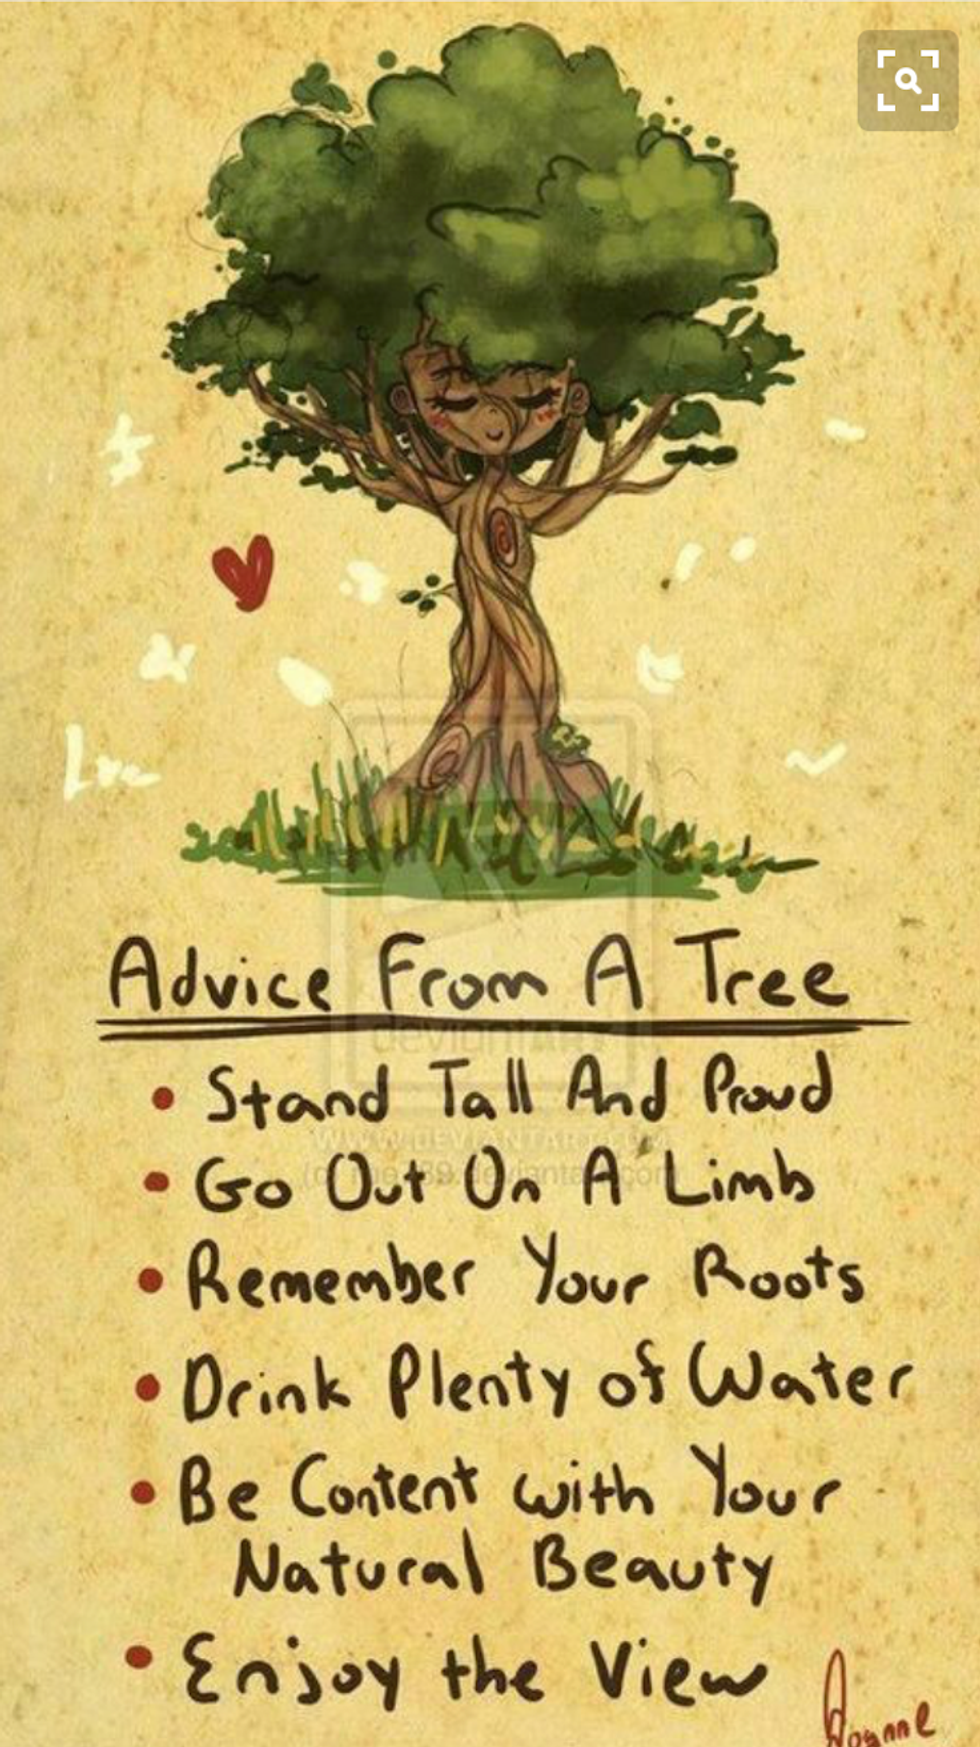 Love
Advice From A Tree
deviantART
• Stand Tall And Proud
WWW.DEVIANTART.COM
• Go Out On A Limb
• Remember Your Roots
• Drink Plenty of Water
• Be Content with Your
Natural Beauty
• Enjoy the View